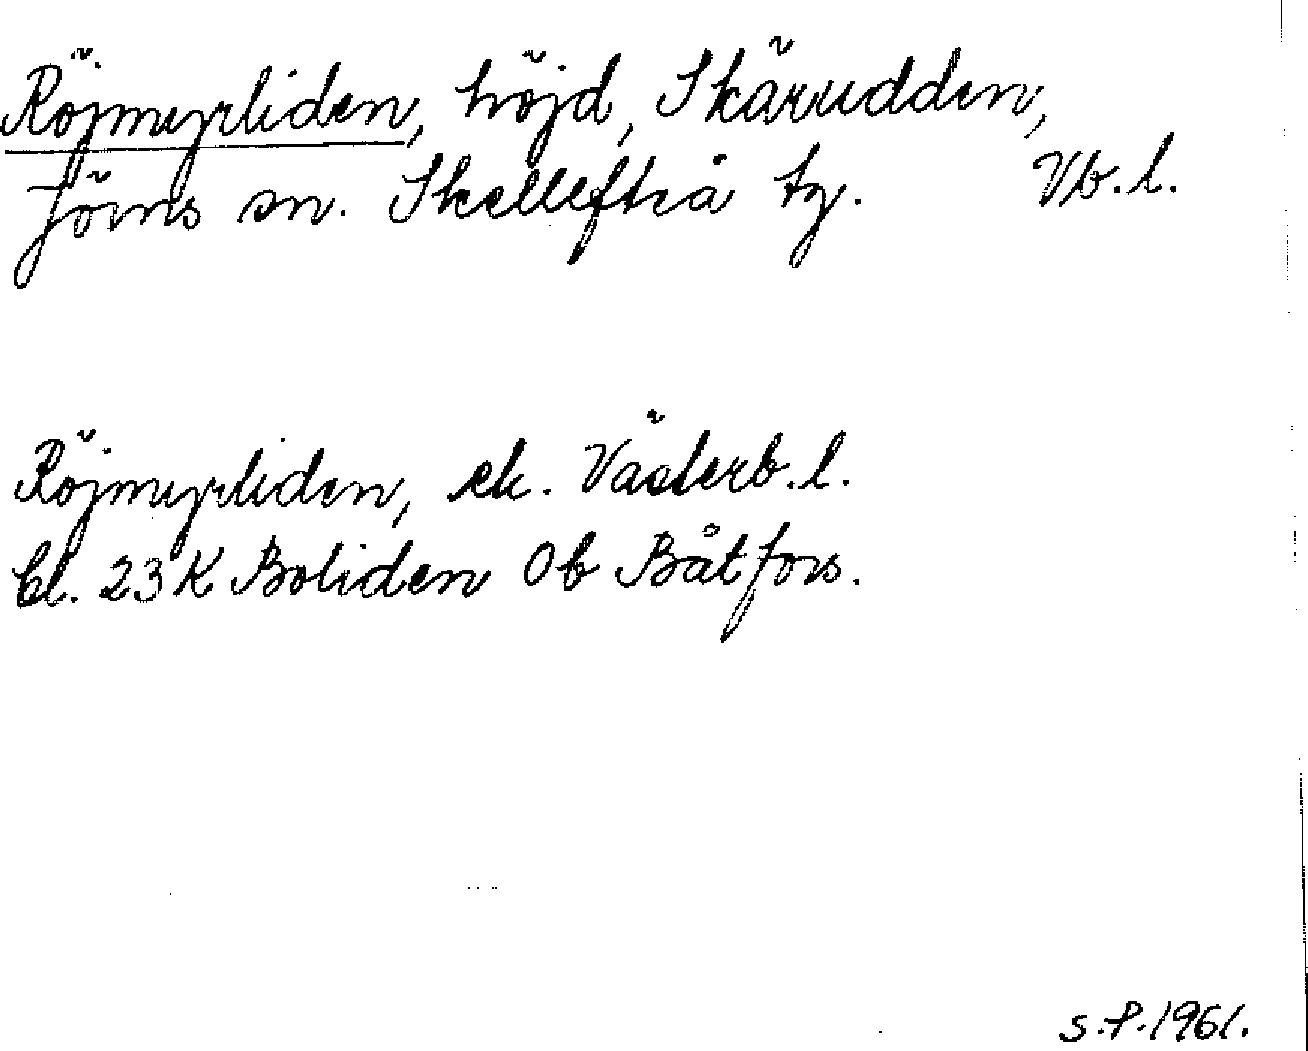 Röjmyrliden, höjd, Skärudden,
Jörns sn. Skellefteå tg. Vb.l.
Röjmyrliden, ek. Västerb.l.
bl. 23 K Boliden Ob Båtfors.
S.P. 1961.